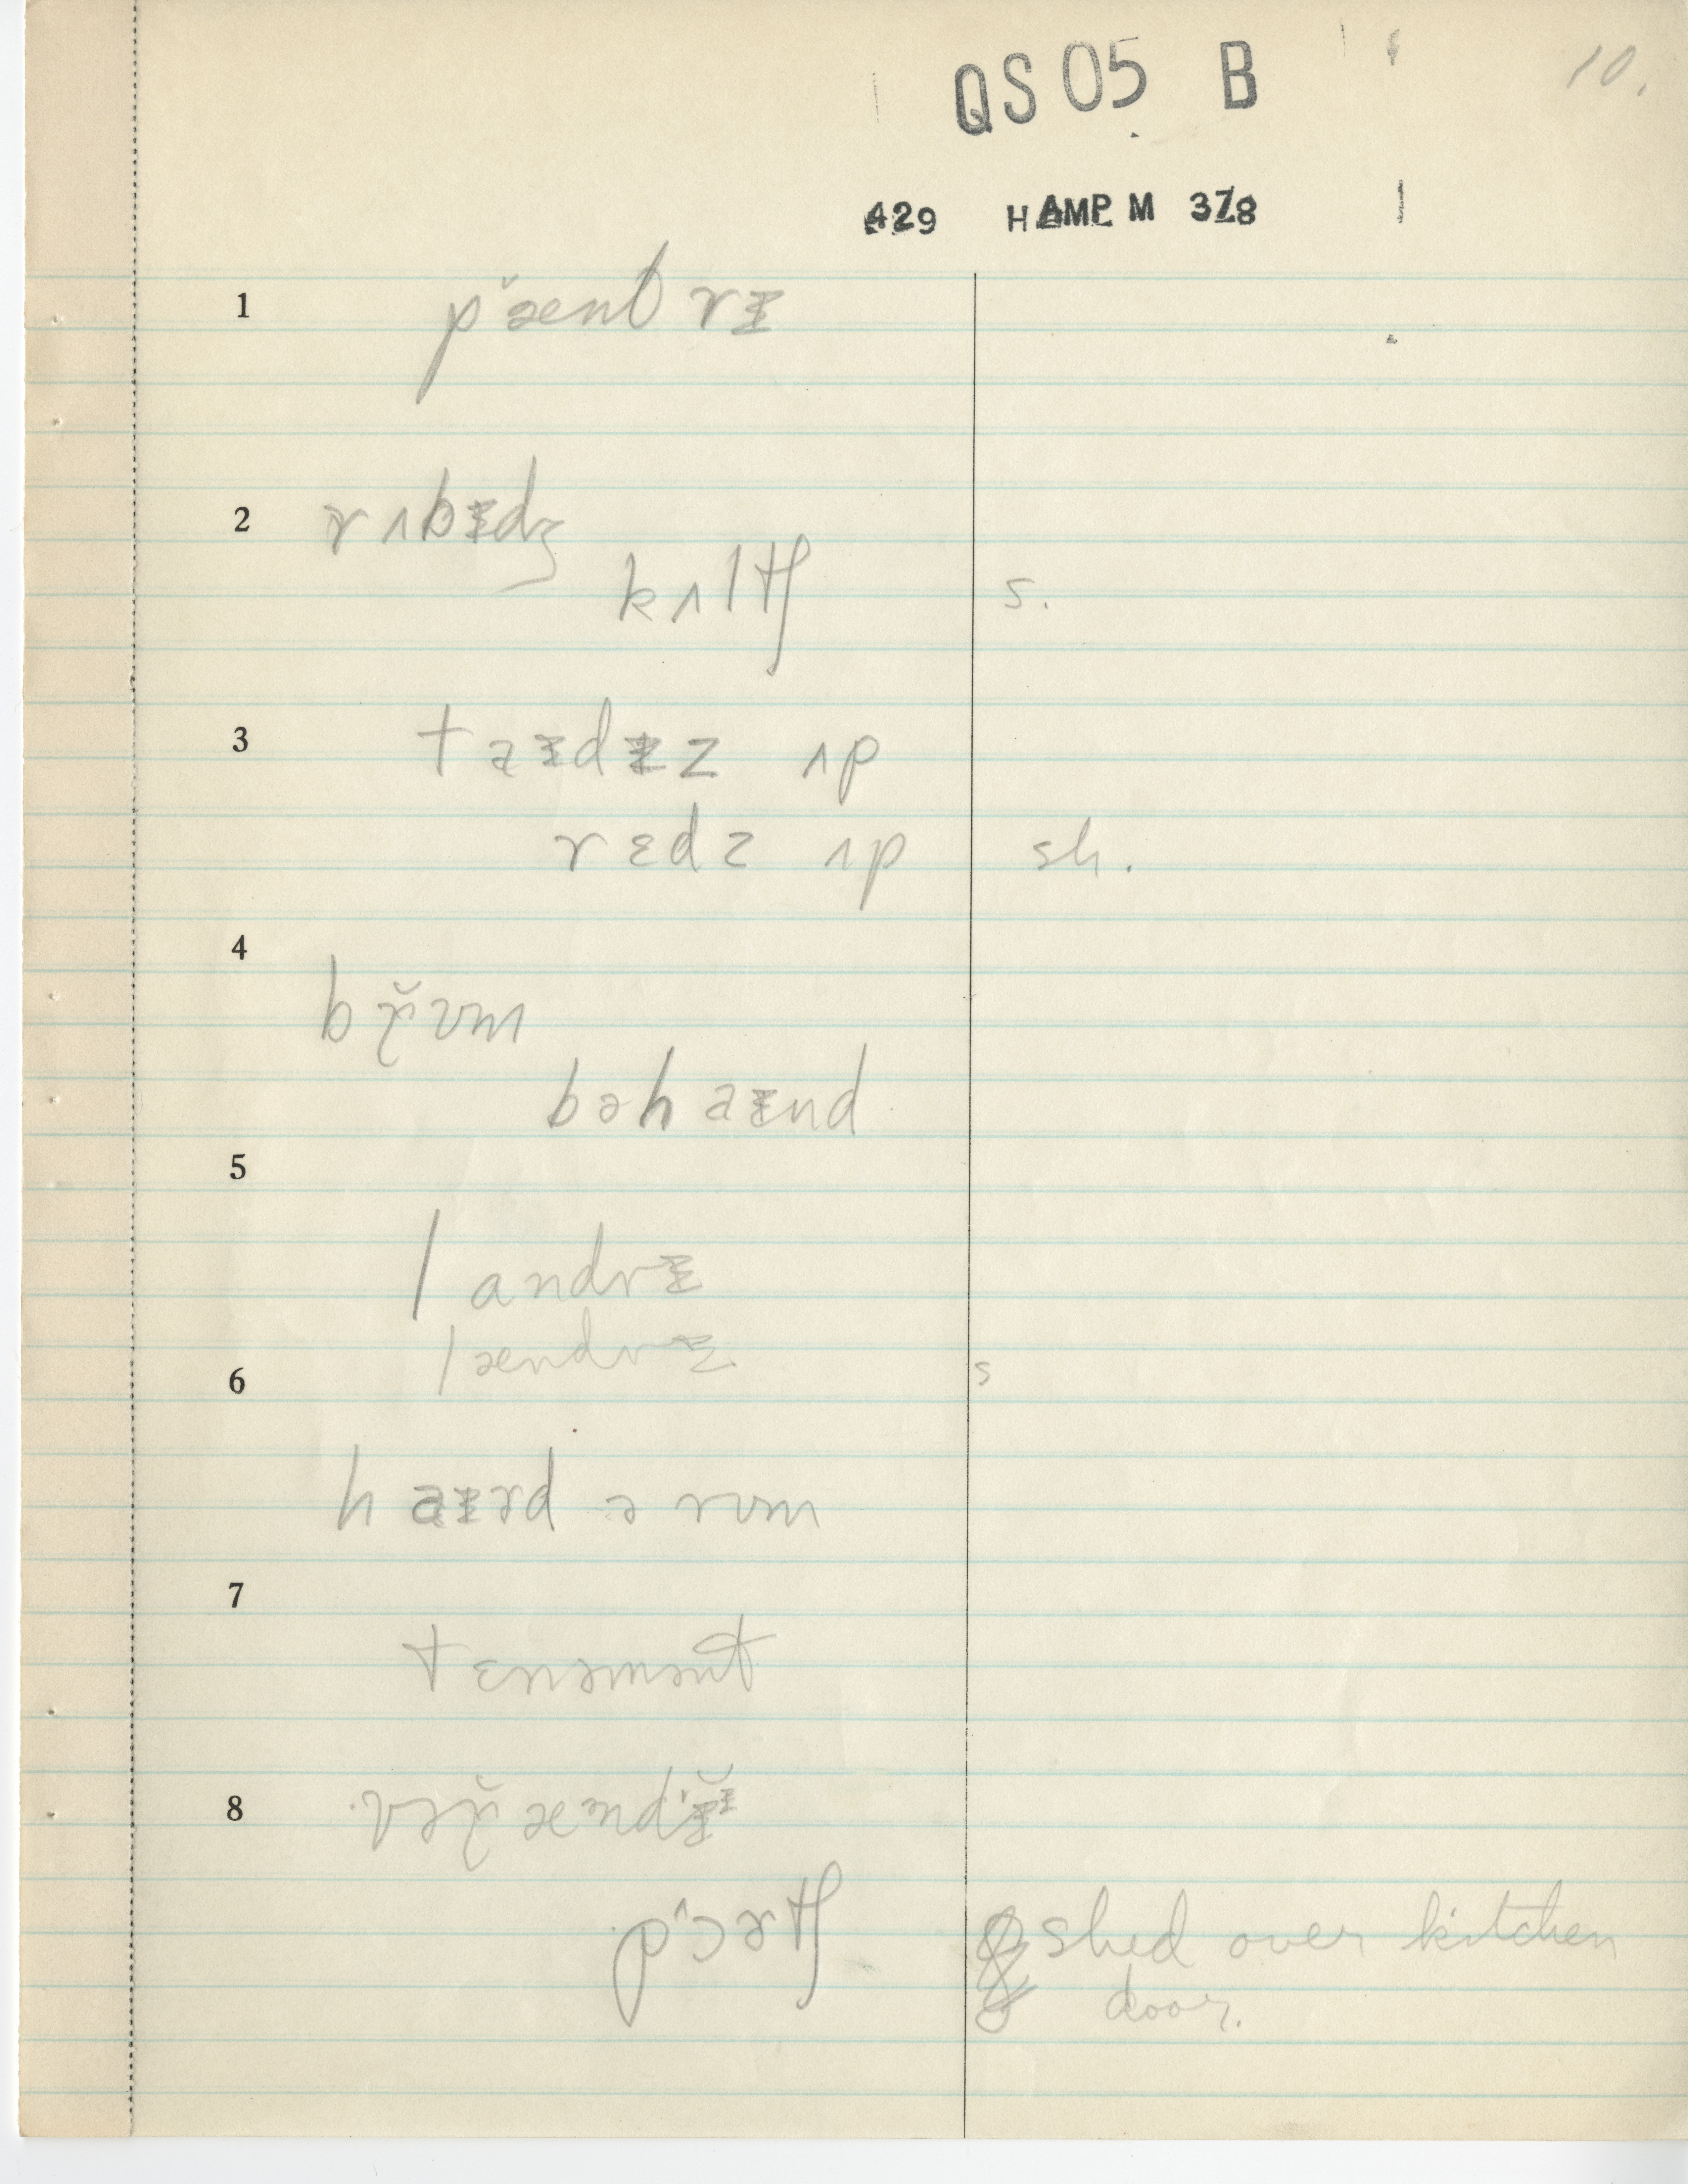 QS 05 B
10.
429 HAMP M 378
1 p̌æntrɨ
2 rʌbɨdʒ
kʌltʃ s.
3 taɨdɨz ʌp
rɛdz ʌp sh.
4 bř̬ʊm
bəhaɨnd
5
landrɨ
lændrɨ s
6
haɨrd ə rʊm
7
tɛnəmənt
8
pɔ^ərtʃ shed over kitchen
door.